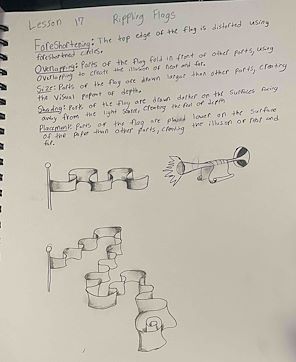 Lesson 17 Rippling Flags
Foreshortening: The top edge of the flag is distorted using
foreshortened circles.
Overlapping: Parts of the flag fold in front of other parts, using
overlapping to create the illusion of near and far.
Size: Parts of the flag are drawn larger than other parts, creating
the visual of depth.
Shading: Parts of the flag are drawn darker on the surfaces facing
away from the light source, creating the of depth
Placement: Parts of the flag are placed lower on the surface
of the paper than other parts, creating the illusion of near and
far.